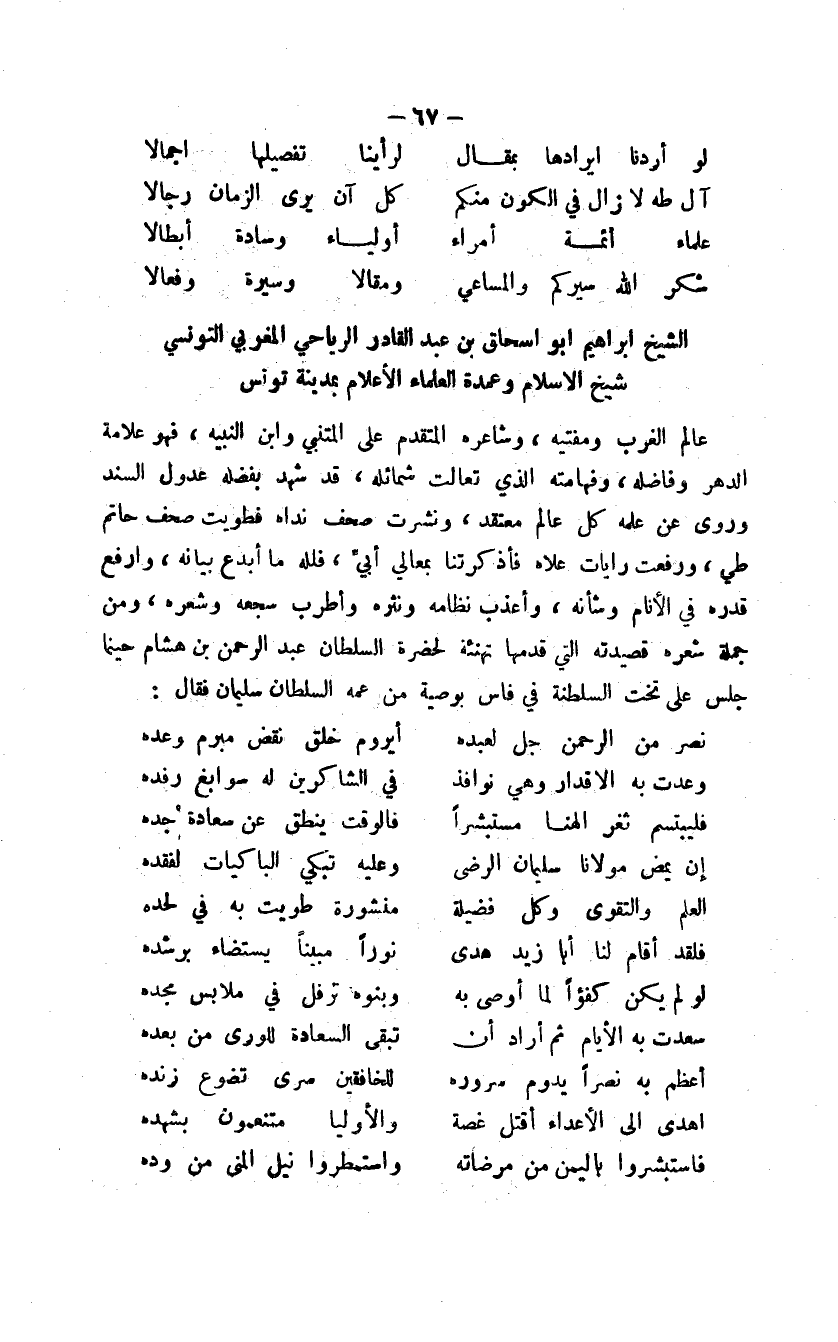 — ٦٧ —
لو أردنا ايرادها بمقـــال لرأينا تفصيلها اجمالا
آل طه لا زال في الكون منكم كل آن يرى الزمان رجالا
علماء أئمـــة أمراء أوليـــاء وسادة أبطالا
شكر الله سيركم والمساعي ومقالا وسيرة وفعالا
الشيخ ابراهيم ابو اسحاق بن عبد القادر الرياحي المغربي التونسي
شيخ الاسلام وعمدة العلماء الأعلام بمدينة تونس
عالم الغرب ومفتيه ، وشاعره المتقدم على المتنبي وابن النبيه ، فهو علامة
الدهر وفاضله ، وفهامته الذي تعالت شمائله ، قد شهد بفضله عدول السند
وروى عن علمه كل عالم معتقد ، ونشرت صحف نداه فطويت صحف حاتم
طي ، ورفعت رايات علاه فأذكرتنا بمعالي أبيّ ، فلله ما أبدع بيانه ، وارفع
قدره في الأنام وشأنه ، وأعذب نظامه ونثره وأطرب سجعه وشعره ، ومن
جملة شعره قصيدته التي قدمها تهنئة لحضرة السلطان عبد الرحمن بن هشام حينما
جلس على تخت السلطنة في فاس بوصية من عمه السلطان سليمان فقال :
نصر من الرحمن جل لعبده أيروم خلق نقض مبرم وعده
وعدت به الاقدار وهي نوافذ في الشاكرين له سوابغ رفده
فليبتسم ثغر الهنـا مستبشراً فالوقت ينطق عن سعادة جده
إن يمض مولانا سليمان الرضى وعليه تبكي الباكيات لفقده
العلم والتقوى وكل فضيلة منشورة طويت به في لحده
فلقد أقام لنا أبا زيد هدى نوراً مبيناً يستضاء برشده
لو لم يكن كفؤاً لما أوصى به وبنوه ترفل في ملابس مجده
سعدت به الأيام ثم أراد أن تبقى السعادة للورى من بعده
أعظم به نصراً يدوم سروره للخافقين سرى تضوع زنده
اهدى الى الأعداء أقتل غصة والأوليا متنعمون بشهده
فاستبشروا باليمن من مرضاته واستمطروا نيل المنى من وده